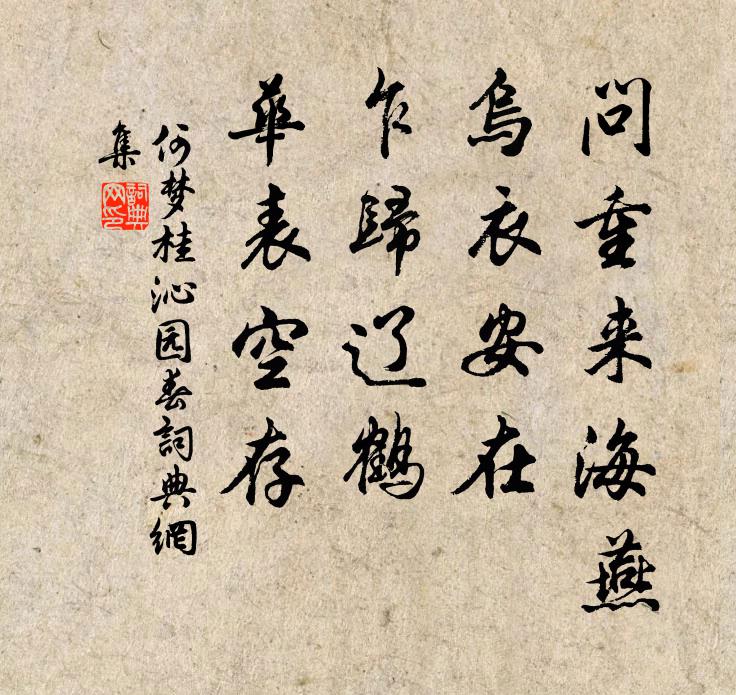 问重来海燕
乌衣安在
乍歸辽鹤
華表空存
何梦桂沁园春詞典網
集
詞典
网印